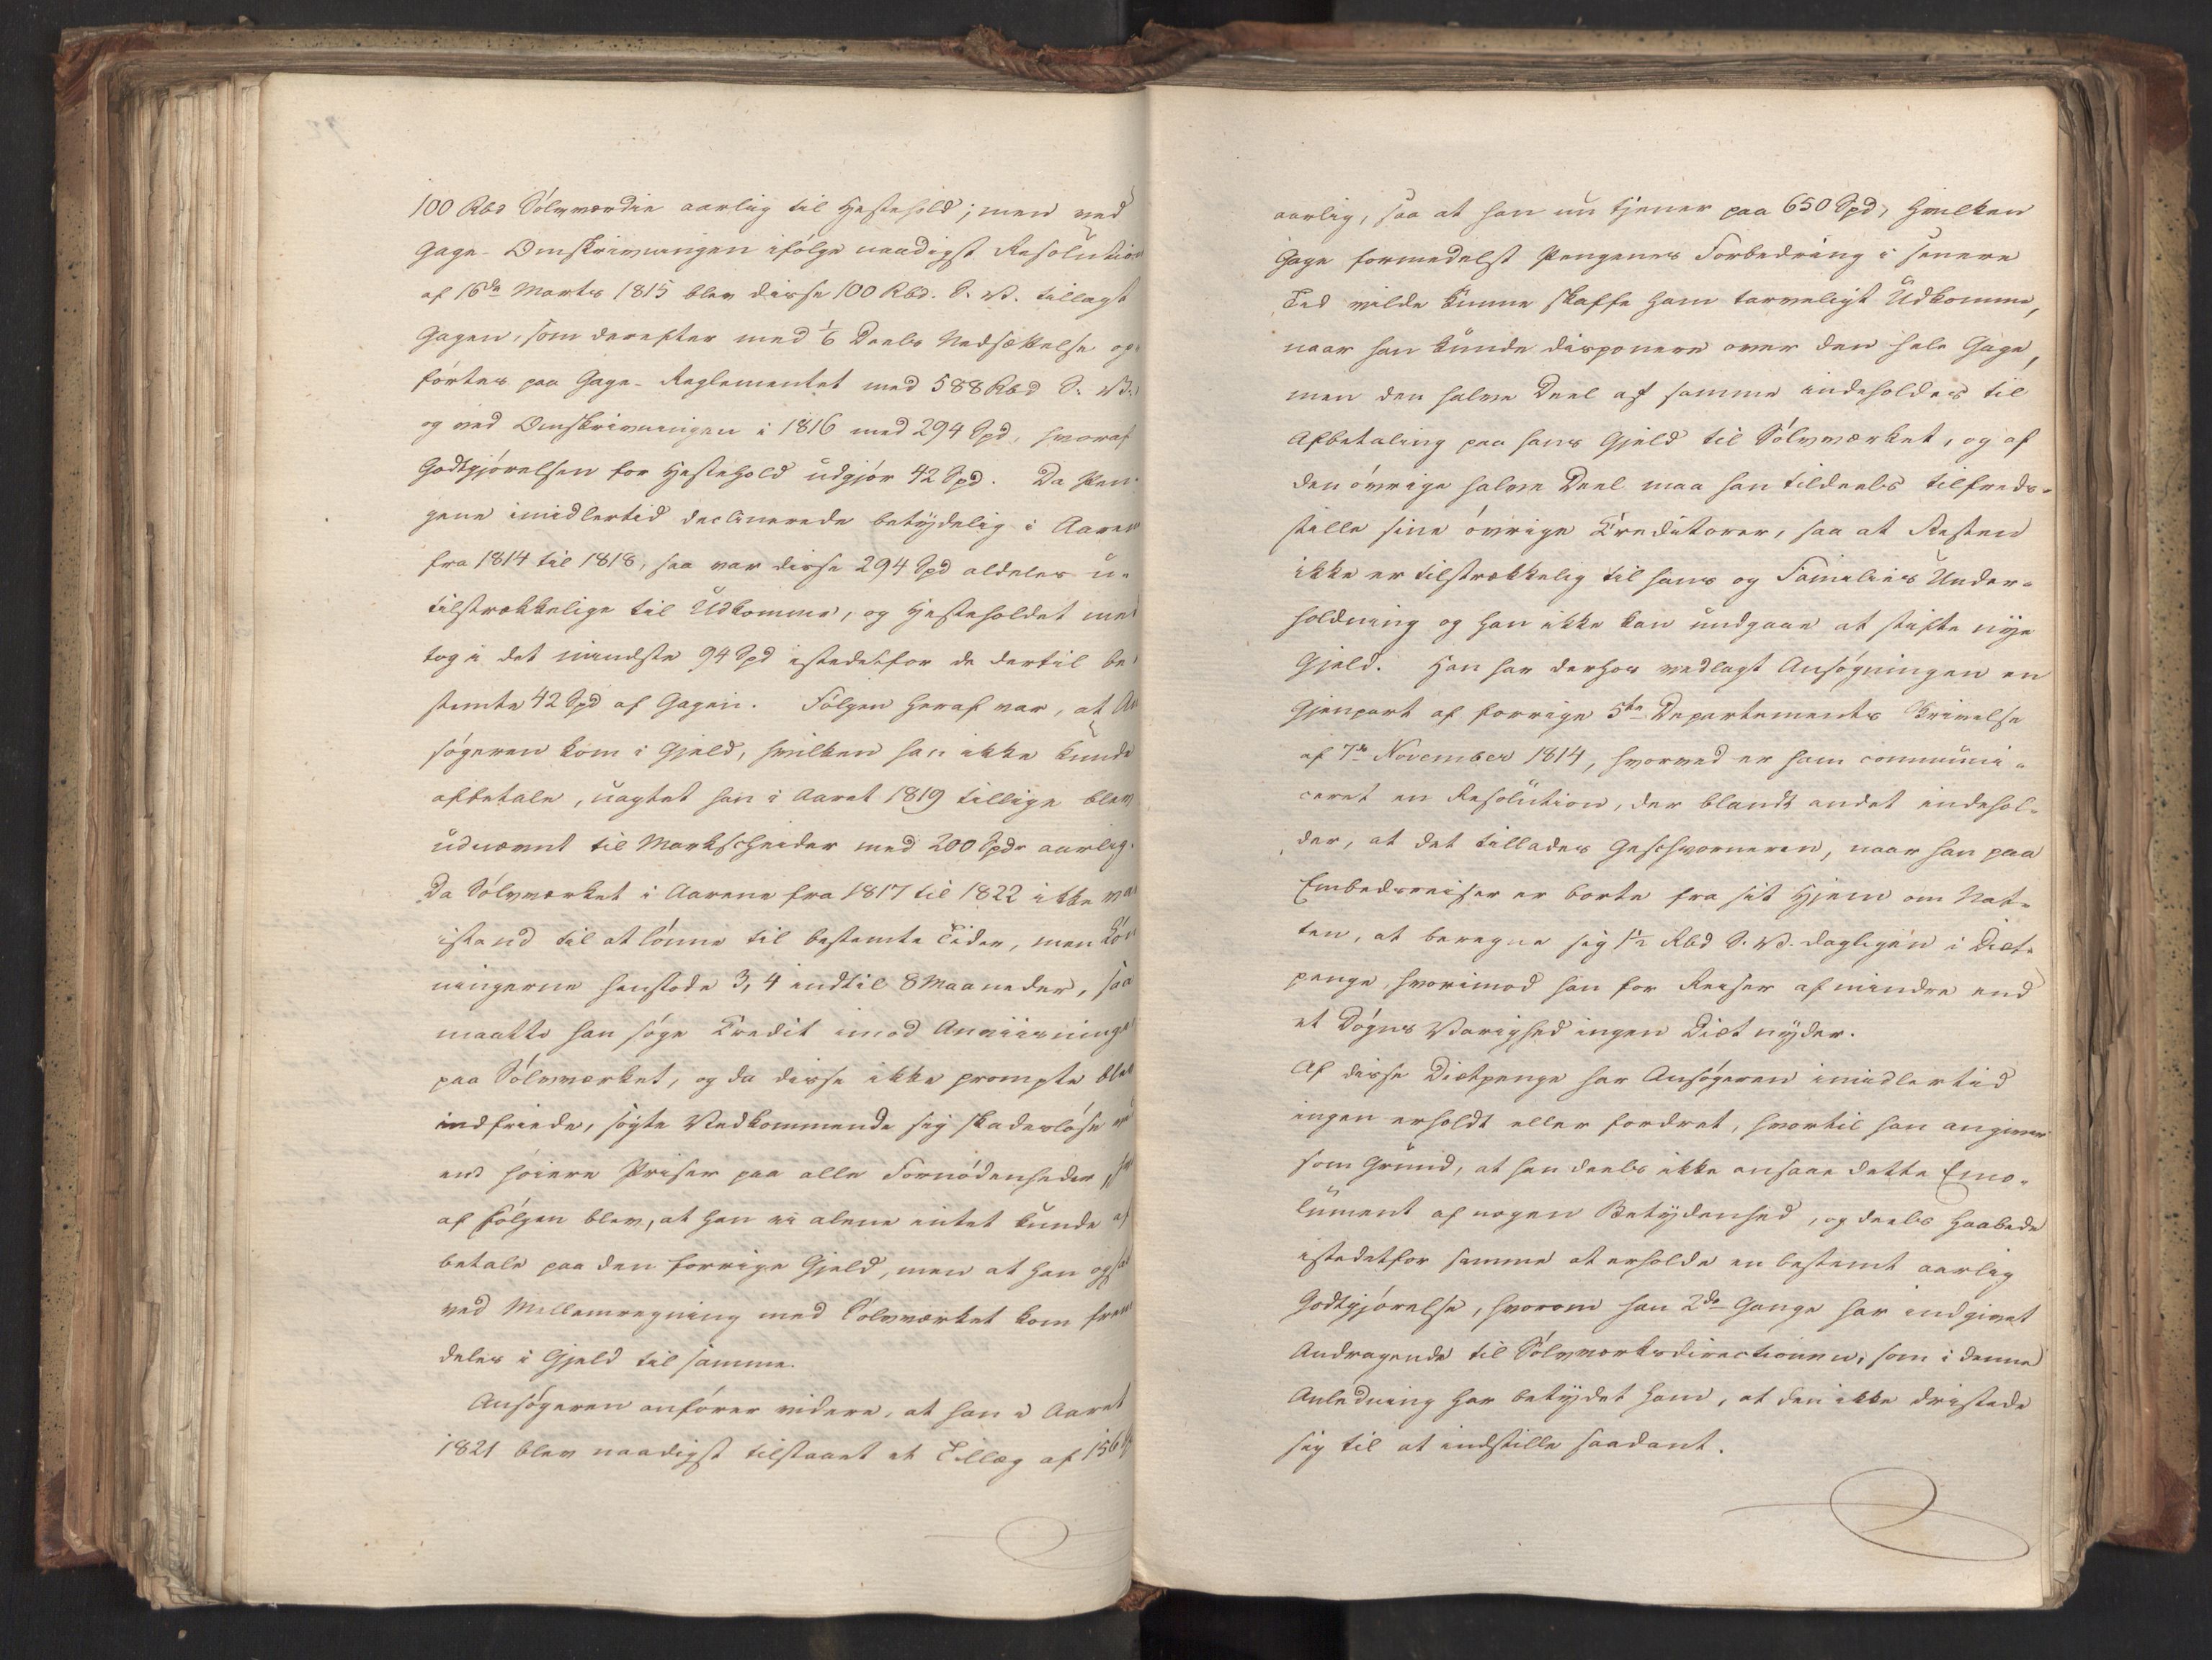 100 Rbd Sölvværdie aarlig til Hestehold; men ved
Gage-Omskrivningen ifölge naadigst Resolution
af 16de Marts 1815 blev disse 100 Rbd. S. V. tillagt
Gagen, som derefter med 1/6 Deels Nedsættelse op-
förtes paa Gage-Reglementet med 588 Rbd S. V.
og ved Omskrivningen i 1816 med 294 Spd, hvoraf
Godtgjörelsen for Hestehold udgjör 42 Spd. Da Pen-
gene imidlertid declinerede betydelig i Aaren
fra 1814 til 1818, saa var disse 294 Spd aldeles u-
tilstrækkelige til Udkomme, og Hesteholdet med
tog i det mindste 94 Spd istedetfor de dertil be-
stemte 42 Spd af Gagen. Fölgen heraf var, at An
sögeren kom i Gjeld, hvilken han ikke kunde
afbetale, uagtet han i Aaret 1819 tillige blev
udnævnt til Markscheider med 200 Spdr aarlig.
Da Sölvværket i Aarene fra 1817 til 1822 ikke var
istand til at lönne til bestemte Tider, men Lön
ningerne henstode 3, 4 indtil 8 Maaneder, saa
maatte han söge Credit imod Anviisninger
paa Sölvværket, og da disse ikke prompte blev
indfriede, sögte Vedkommende sig skadeslöse ved
end höiere Priser paa alle Fornödenheder, hvor
af Fölgen blev, at han ei alene intet kunde af
betale paa den forrige Gjeld, men at han ogsaa
ved Mellemregning med Sölvværket kom frem
deles i Gjeld til samme.
Ansögeren anförer videre, at han i Aaret
1821 blev naadigst tilstaaet et Tillæg af 156 Sp
aarlig, saa at han nu tjener paa 650 Spd, hvilken
Gage formedelst Pengenes Forbedring i senere
Tid vilde kunne skaffe ham tarveligt Udkomme,
naar han kunde disponere over den hele Gage,
men den halve Deel af samme indeholdes til
Afbetaling paa hans Gjeld til Sölvværket, og af
den övrige halve Deel maa han tildeels tilfreds-
stille sine övrige Creditorer, saa at Resten
ikke er tilstrækkelig til hans og Families Under-
holdning og han ikke kan undgaae at stifte nye
Gjeld. Han har derhos vedlagt Ansögningen en
Gjenpart af forrige 5te Departements Skrivelse
af 7de November 1814, hvorved er ham communi-
ceret en Resolution, der blandt andet indehol-
der, at det tillades Geschworneren, naar han paa
Embedsreiser er borte fra sit Hjem om Nat-
ten, at beregne sig 1 1/2 Rbd S. V. dagligen i Diæt-
penge, hvorimod han for Reiser af mindre end
et Dögns Varighed ingen Diæt nyder.
Af disse Diætpenge har Ansögeren imidlertid
ingen erholdt eller fordret, hvortil han angiver
som Grund, at han deels ikke ansaae dette Emo-
lument af nogen Betydenhed, og deels haabede
istedetfor samme at erholde en bestemt aarlig
Godtgjörelse, hvorom han 2de Gange har indgivet
Andragende til Sölvværksdirectionen, som i denne
Anledning har betydet ham, at den ikke dristede
sig til at indstille saadant.